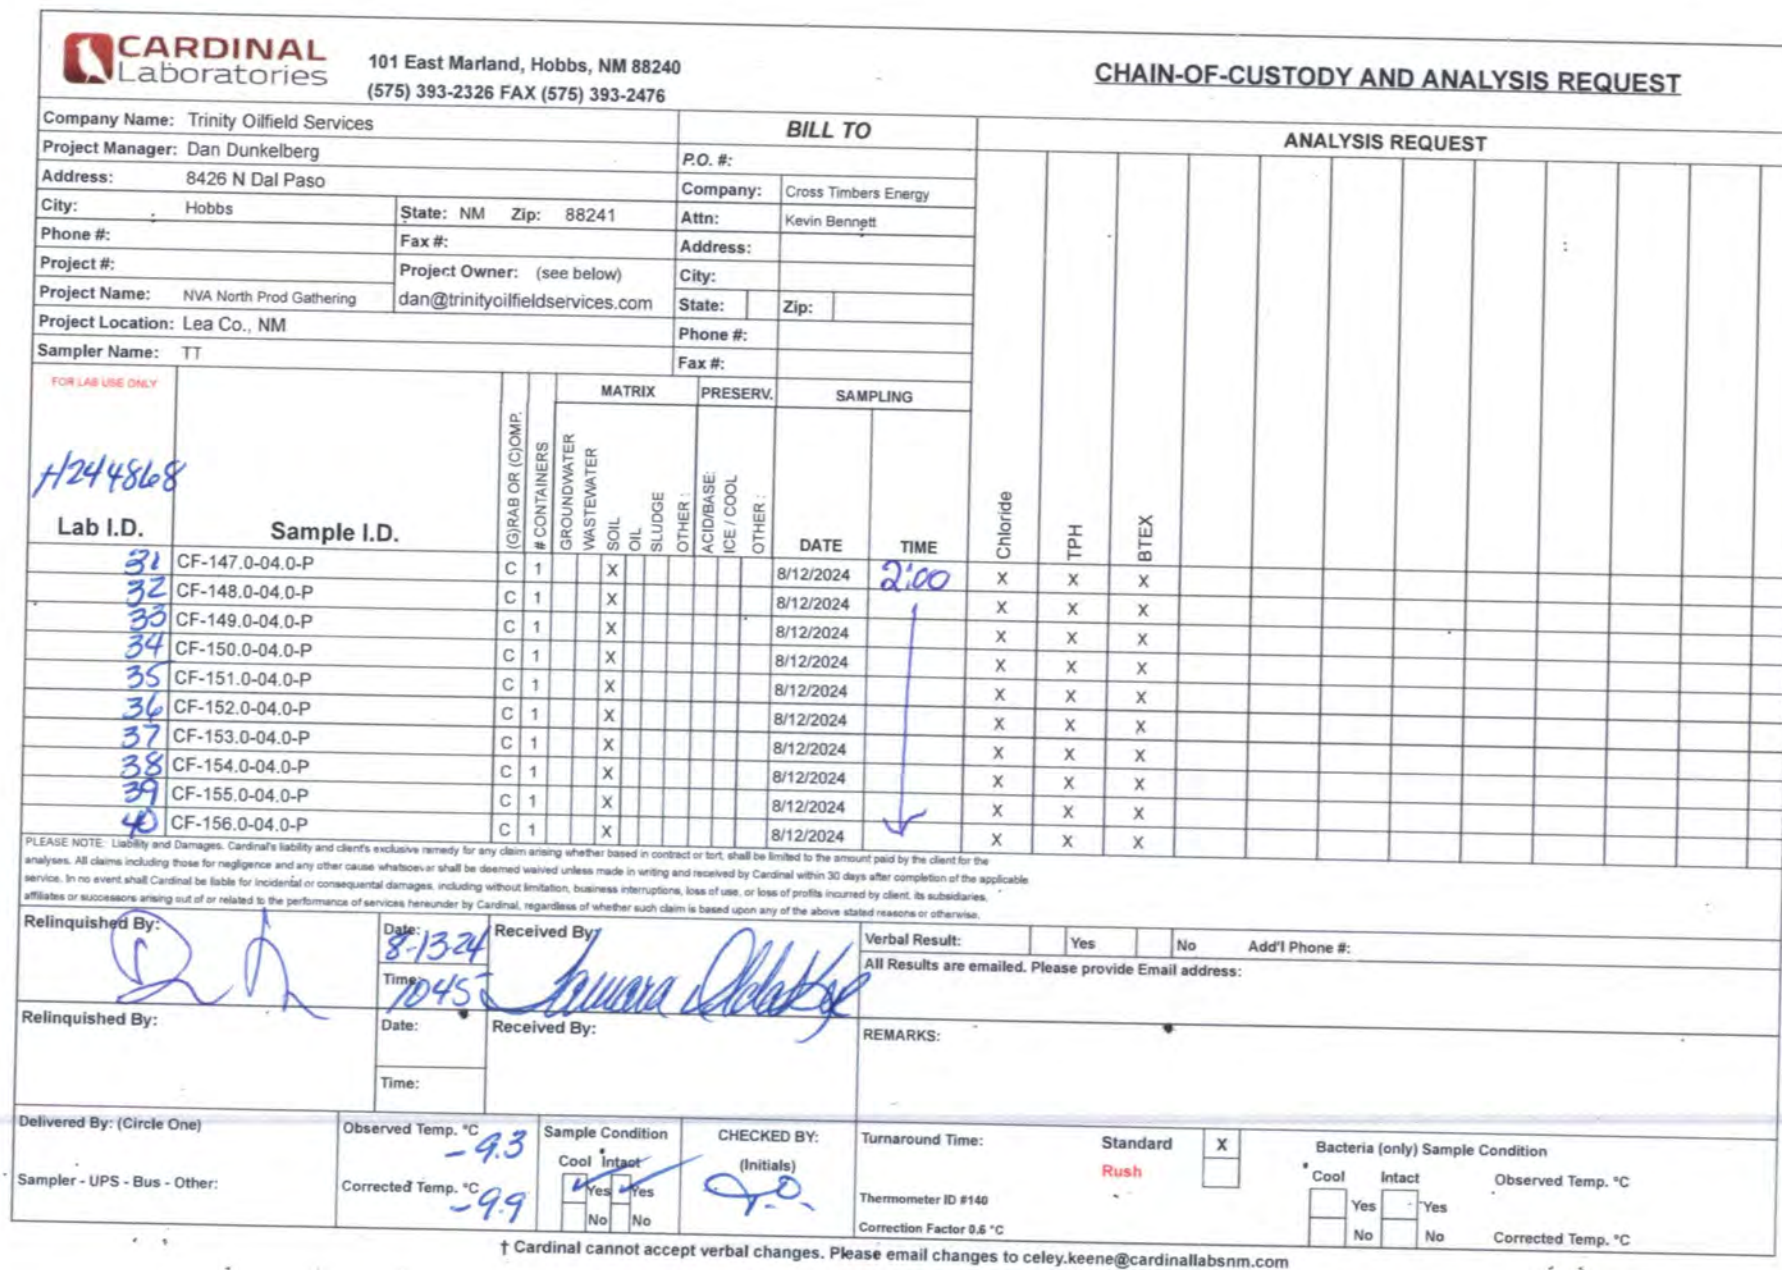 CARDINAL
Laboratories
101 East Marland, Hobbs, NM 88240
(575) 393-2326 FAX (575) 393-2476
CHAIN-OF-CUSTODY AND ANALYSIS REQUEST
Company Name: Trinity Oilfield Services
BILL TO
ANALYSIS REQUEST
Project Manager: Dan Dunkelberg
P.O. #:
Address: 8426 N Dal Paso
Company: Cross Timbers Energy
City: Hobbs State: NM Zip: 88241
Attn: Kevin Bennett
Phone #: Fax #:
Address:
Project #: Project Owner: (see below)
City:
Project Name: NVA North Prod Gathering dan@trinityoilfieldservices.com
State: Zip:
Project Location: Lea Co., NM
Phone #:
Sampler Name: TT
Fax #:
FOR LAB USE ONLY
MATRIX PRESERV. SAMPLING
H244868
Lab I.D. Sample I.D. (G)RAB OR (C)OMP. # CONTAINERS GROUNDWATER WASTEWATER SOIL OIL SLUDGE OTHER : ACID/BASE: ICE / COOL OTHER : DATE TIME Chloride TPH BTEX
31 CF-147.0-04.0-P C 1 X 8/12/2024 2:00 X X X
32 CF-148.0-04.0-P C 1 X 8/12/2024 X X X
33 CF-149.0-04.0-P C 1 X 8/12/2024 X X X
34 CF-150.0-04.0-P C 1 X 8/12/2024 X X X
35 CF-151.0-04.0-P C 1 X 8/12/2024 X X X
36 CF-152.0-04.0-P C 1 X 8/12/2024 X X X
37 CF-153.0-04.0-P C 1 X 8/12/2024 X X X
38 CF-154.0-04.0-P C 1 X 8/12/2024 X X X
39 CF-155.0-04.0-P C 1 X 8/12/2024 X X X
40 CF-156.0-04.0-P C 1 X 8/12/2024 X X X
PLEASE NOTE: Liability and Damages. Cardinal's liability and client's exclusive remedy for any claim arising whether based in contract or tort, shall be limited to the amount paid by the client for the
analyses. All claims including those for negligence and any other cause whatsoever shall be deemed waived unless made in writing and received by Cardinal within 30 days after completion of the applicable
service. In no event shall Cardinal be liable for incidental or consequental damages, including without limitation, business interruptions, loss of use, or loss of profits incurred by client, its subsidiaries,
affiliates or successors arising out of or related to the performance of services hereunder by Cardinal, regardless of whether such claim is based upon any of the above stated reasons or otherwise.
Relinquished By: Date: 8-13-24 Received By:
Time: 1045
Verbal Result: Yes No Add'l Phone #:
All Results are emailed. Please provide Email address:
Relinquished By: Date: Received By:
Time:
REMARKS:
Delivered By: (Circle One)
Sampler - UPS - Bus - Other:
Observed Temp. °C -9.3
Corrected Temp. °C -9.9
Sample Condition
Cool Intact
Yes Yes
No No
CHECKED BY:
(Initials)
Turnaround Time: Standard X
Rush
Thermometer ID #140
Correction Factor 0.6 °C
Bacteria (only) Sample Condition
Cool Intact Observed Temp. °C
Yes Yes
No No Corrected Temp. °C
† Cardinal cannot accept verbal changes. Please email changes to celey.keene@cardinallabsnm.com